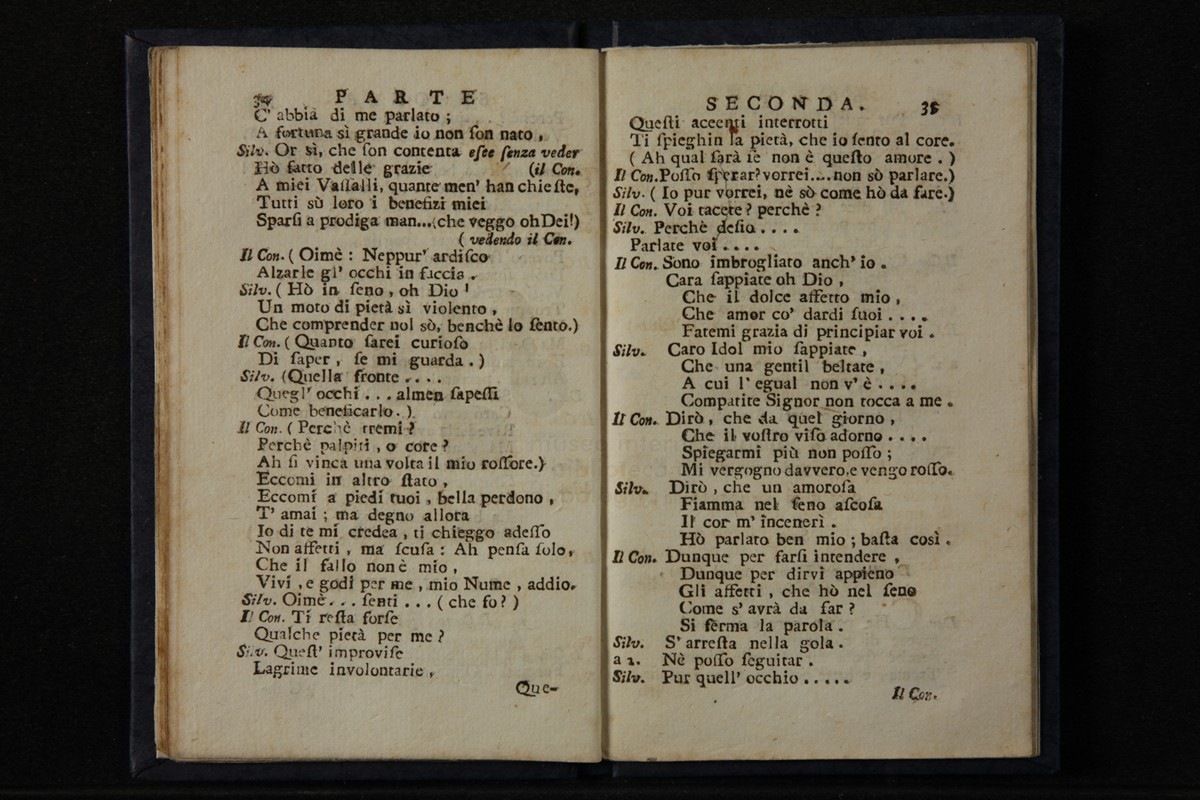 34 PARTE
C' abbia di me parlato ;
A fortuna sì grande io non ſon nato ,
Silv. Or sì, che ſon contenta eſce ſenza veder
Hò fatto delle grazie (il Con.
A miei Vaſſalli, quante men' han chieſte,
Tutti sù loro i benefizi miei
Sparſi a prodiga man...(che veggo oh Dei!)
( vedendo il Con.
Il Con. ( Oimè : Neppur' ardiſco
Alzarle gl' occhi in faccia .
Silv. ( Hò in ſeno , oh Dio !
Un moto di pietà sì violento ,
Che comprender nol sò, benchè lo ſento.)
Il Con. ( Quanto ſarei curioſo
Di ſaper , ſe mi guarda . )
Silv. (Quella fronte . . . .
Quegl' occhi . . . almen ſapeſſi
Come beneficarlo. )
Il Con. ( Perchè tremi ?
Perchè palpiti , o core ?
Ah ſi vinca una volta il mio roſſore.)
Eccomi in altro ſtato ,
Eccomi a piedi tuoi , bella perdono ,
T' amai ; ma degno allora
Io di te mi credea , ti chieggo adeſſo
Non affetti , ma ſcuſa : Ah penſa ſolo,
Che il fallo non è mio ,
Vivi , e godi per me , mio Nume , addio.
Silv. Oimè . . . ſenti . . . ( che fo ? )
Il Con. Ti reſta forſe
Qualche pietà per me ?
Silv. Queſt' improviſe
Lagrime involontarie ,
Que-
SECONDA. 35
Queſti accenti interrotti
Ti ſpieghin la pietà, che io ſento al core.
( Ah qual ſarà ſe non è queſto amore . )
Il Con. Poſſo ſperar? vorrei....non sò parlare.)
Silv. ( Io pur vorrei, nè sò come hò da fare.)
Il Con. Voi tacete ? perchè ?
Silv. Perchè deſio . . . .
Parlate voi . . . .
Il Con. Sono imbrogliato anch' io .
Cara ſappiate oh Dio ,
Che il dolce affetto mio ,
Che amor co' dardi ſuoi . . . .
Fatemi grazia di principiar voi .
Silv. Caro Idol mio ſappiate ,
Che una gentil beltate ,
A cui l' egual non v' è . . . .
Compatite Signor non tocca a me .
Il Con. Dirò , che da quel giorno ,
Che il voſtro viſo adorno . . . .
Spiegarmi più non poſſo ;
Mi vergogno davvero, e vengo roſſo.
Silv. Dirò , che un amoroſa
Fiamma nel ſeno aſcoſa
Il cor m' incenerì .
Hò parlato ben mio ; baſta così .
Il Con. Dunque per farſi intendere ,
Dunque per dirvi appieno
Gli affetti , che hò nel ſeno
Come s' avrà da far ?
Si ferma la parola .
Silv. S' arreſta nella gola .
a 2. Nè poſſo ſeguitar .
Silv. Pur quell' occhio . . . . .
Il Con.